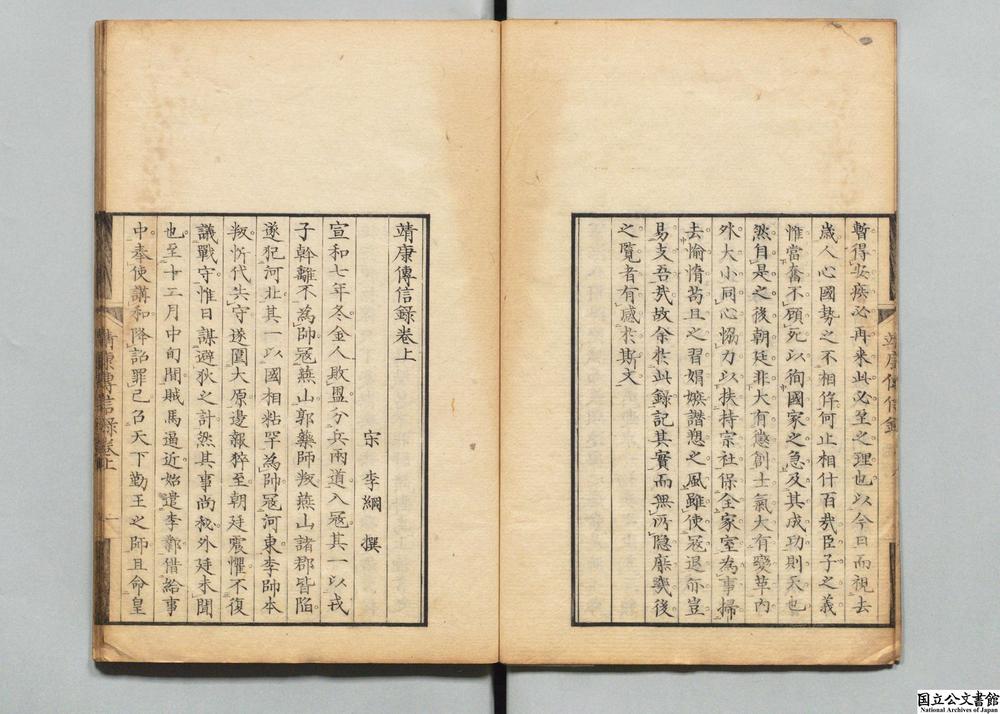 暫得安疾必再来此必至之理也以今日而視去
歳人心國勢之不相侔何止相什百哉臣子之義
惟當奮不顧死以徇國家之急及其成功則天也
然自是之後朝廷非大有懲創士氣大有變革内
外大小同心協力以扶持宗社保全家室為事掃
去偷惰苟且之習媢嫉譖愬之風雖使冦退亦豈
易支吾哉故余於此録記其實而無所隠庶㡬後
之覧者有感於斯文
靖康傳信録巻上
宋 李綱 撰
宣和七年冬金人敗盟分兵兩道入冦其一以戎
子幹離不為帥冦燕山郭藥師叛燕山諸郡皆陥
遂犯河北其一以國相粘罕為帥冦河東李師本
叛忻代失守遂圍太原邉報猝至朝廷震懼不復
議戰守惟日謀避狄之計然其事尚秘外廷未聞
也至十二月中旬聞賊馬逼近始遣李鄴借給事
中奉使講和降詔罪已召天下勤王之師且命皇
靖康傳信録巻上
一
国立公文書館
National Archives of Japan